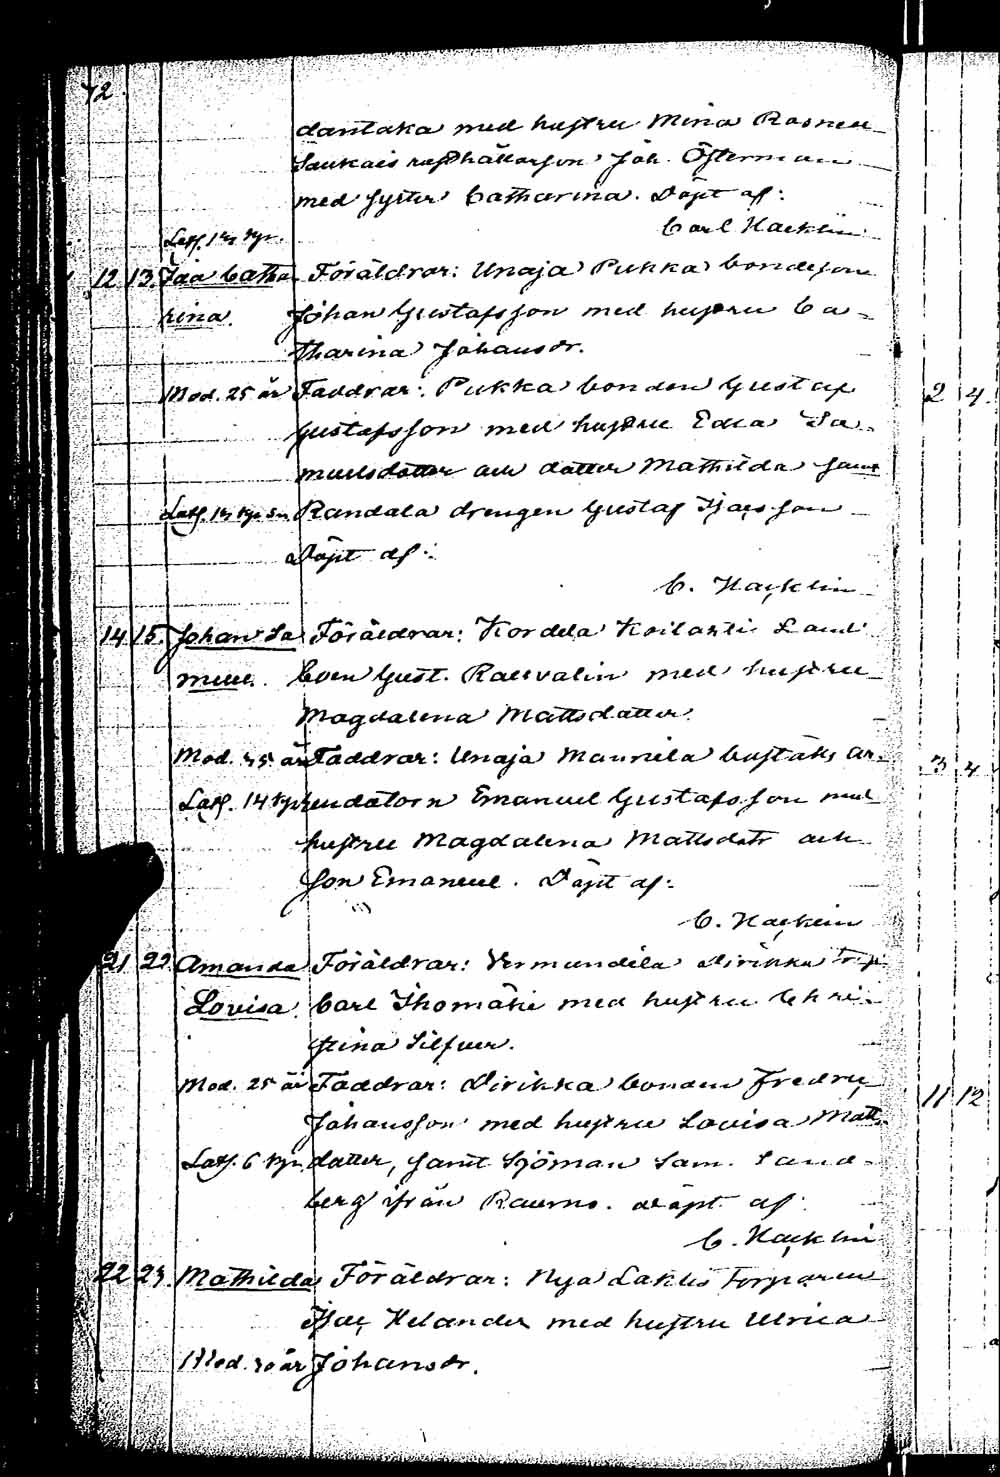 72.
dantaka med hustru Mina Rosnell
Saukais rusthållarson Joh. Österman
med syster Catharina. Döpt af:
Carl Hacklin
12 13. Ida Catha- Föräldrar: Unaja Pukka bondeson
rina. Johan Gustafsson med hustru Ca-
tharina Johansdr.
Mod. 25 år Faddrar: Pukka bonden Gustaf
Gustafsson med hustru Edla Sa-
muelsdotter och dotter Mathilda samt
Randala drengen Gustaf Isacsson
Döpt af:
C. Hacklin
14 15. Johan Sa- Föräldrar: Kordela
muel. Gust. med hustru
Magdalena Mattsdotter.
Mod. 35 år Faddrar: Unaja Mannila bostälts ar-
Latf. 14 Kyr. rendatorn Emanuel Gustafsson med
hustru Magdalena Mattsdotr och
son Emanuel. Döpt af:
C. Hacklin
21 22. Amanda Föräldrar: Vermundila Dirikka Torp.
Lovisa. Carl Thomasie med hustru Chri-
stina Silfver.
Mod. 25 år Faddrar: Dirikka bonden Fredric
Johansson med hustru Lovisa Matts-
Latf. 6 Kyr. dotter, samt Sjöman Sam. Sand-
berg ifrån Raumo. Döpt af:
C. Hacklin
22 23. Mathilda Föräldrar: Nya Laktis Torparen
Isac Helander med hustru Ulrica
Mod. 30 år Johansdr.
2 4.
3 4
11 12